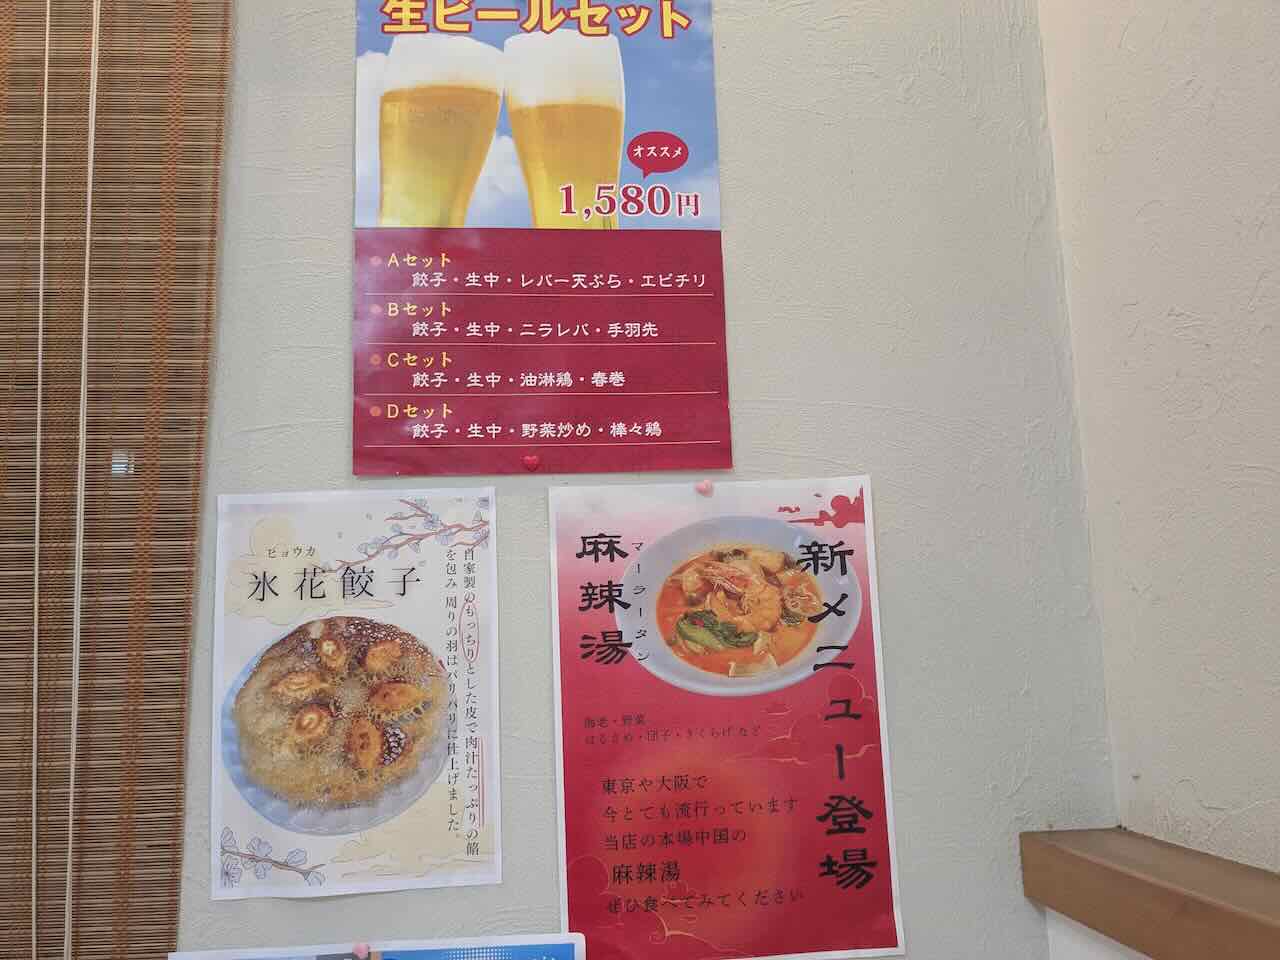 生ビールセット
オススメ
1,580円
Aセット
餃子・生中・レバー天ぷら・エビチリ
Bセット
餃子・生中・ニラレバ・手羽先
Cセット
餃子・生中・油淋鶏・春巻
Dセット
餃子・生中・野菜炒め・棒々鶏
ヒョウカ
氷花餃子
自家製のもっちりとした皮で肉汁たっぷりの餡
を包み 周りの羽はパリパリに仕上げました。
新メニュー登場
麻辣湯
マーラータン
海老・野菜
はるさめ・団子・きくらげ など
東京や大阪で
今とても流行っています
当店の本場中国の
麻辣湯
ぜひ食べてみてください